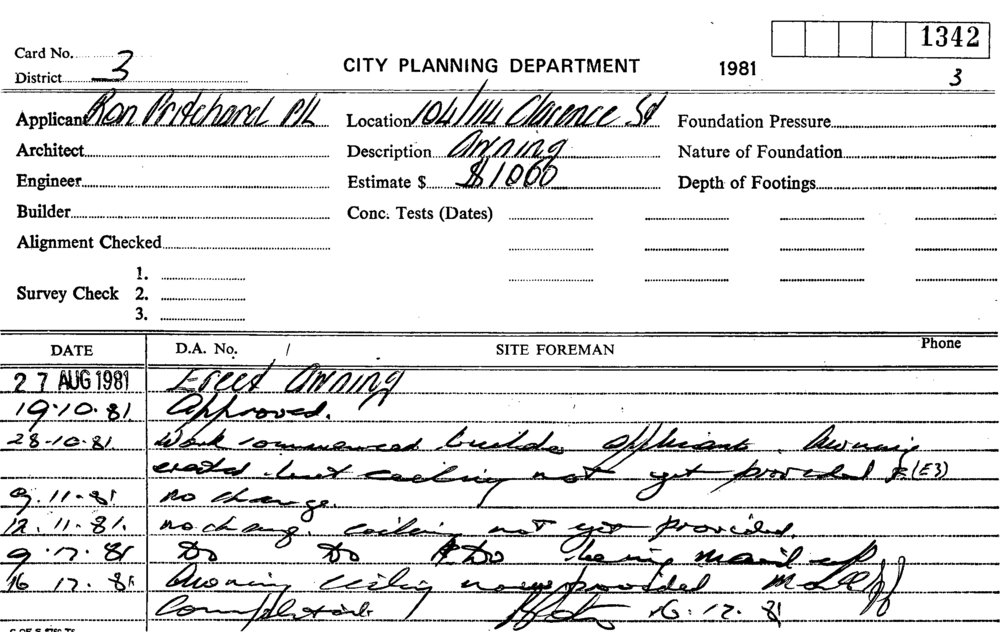 1342
Card No. 3
District
CITY PLANNING DEPARTMENT 1981 3
Applicant Ron Pritchard P/L Location 104/114 Clarence St Foundation Pressure
Architect Description Awning Nature of Foundation
Engineer Estimate $ $1000 Depth of Footings
Builder Conc. Tests (Dates)
Alignment Checked
1.
Survey Check 2.
3.
DATE D.A. No. / SITE FOREMAN Phone
27 AUG 1981 Erect Awning
19.10.81. Approved.
28-10-81. Work commenced builder applicant. Awning
erected but ceiling not yet provided (E3)
9.11.81 no change.
12.11.81. no change. ceiling not yet provided.
9.12.81 Do Do Do being
16 12. 81 Awning ceiling now provided
16.12.81